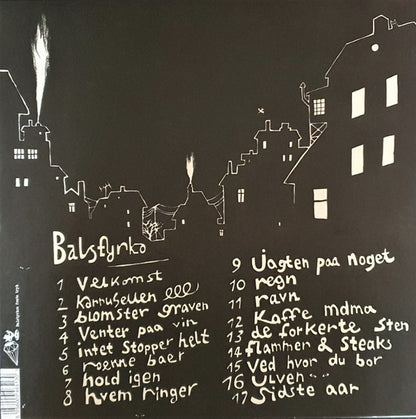 Balstyrko
1 velkomst
2 Karrusellen elll
3 blomster graven
4 Venter paa vin
5 intet stopper helt
6 roenne baer
7 hold igen
8 hvem ringer
9 Jagten paa noget
10 regn
11 ravn
12 Kaffe mdma
13 de forkerte sten
14 flammer & Steaks
15 Ved hvor du bor
16 Ulven
17 Sidste aar